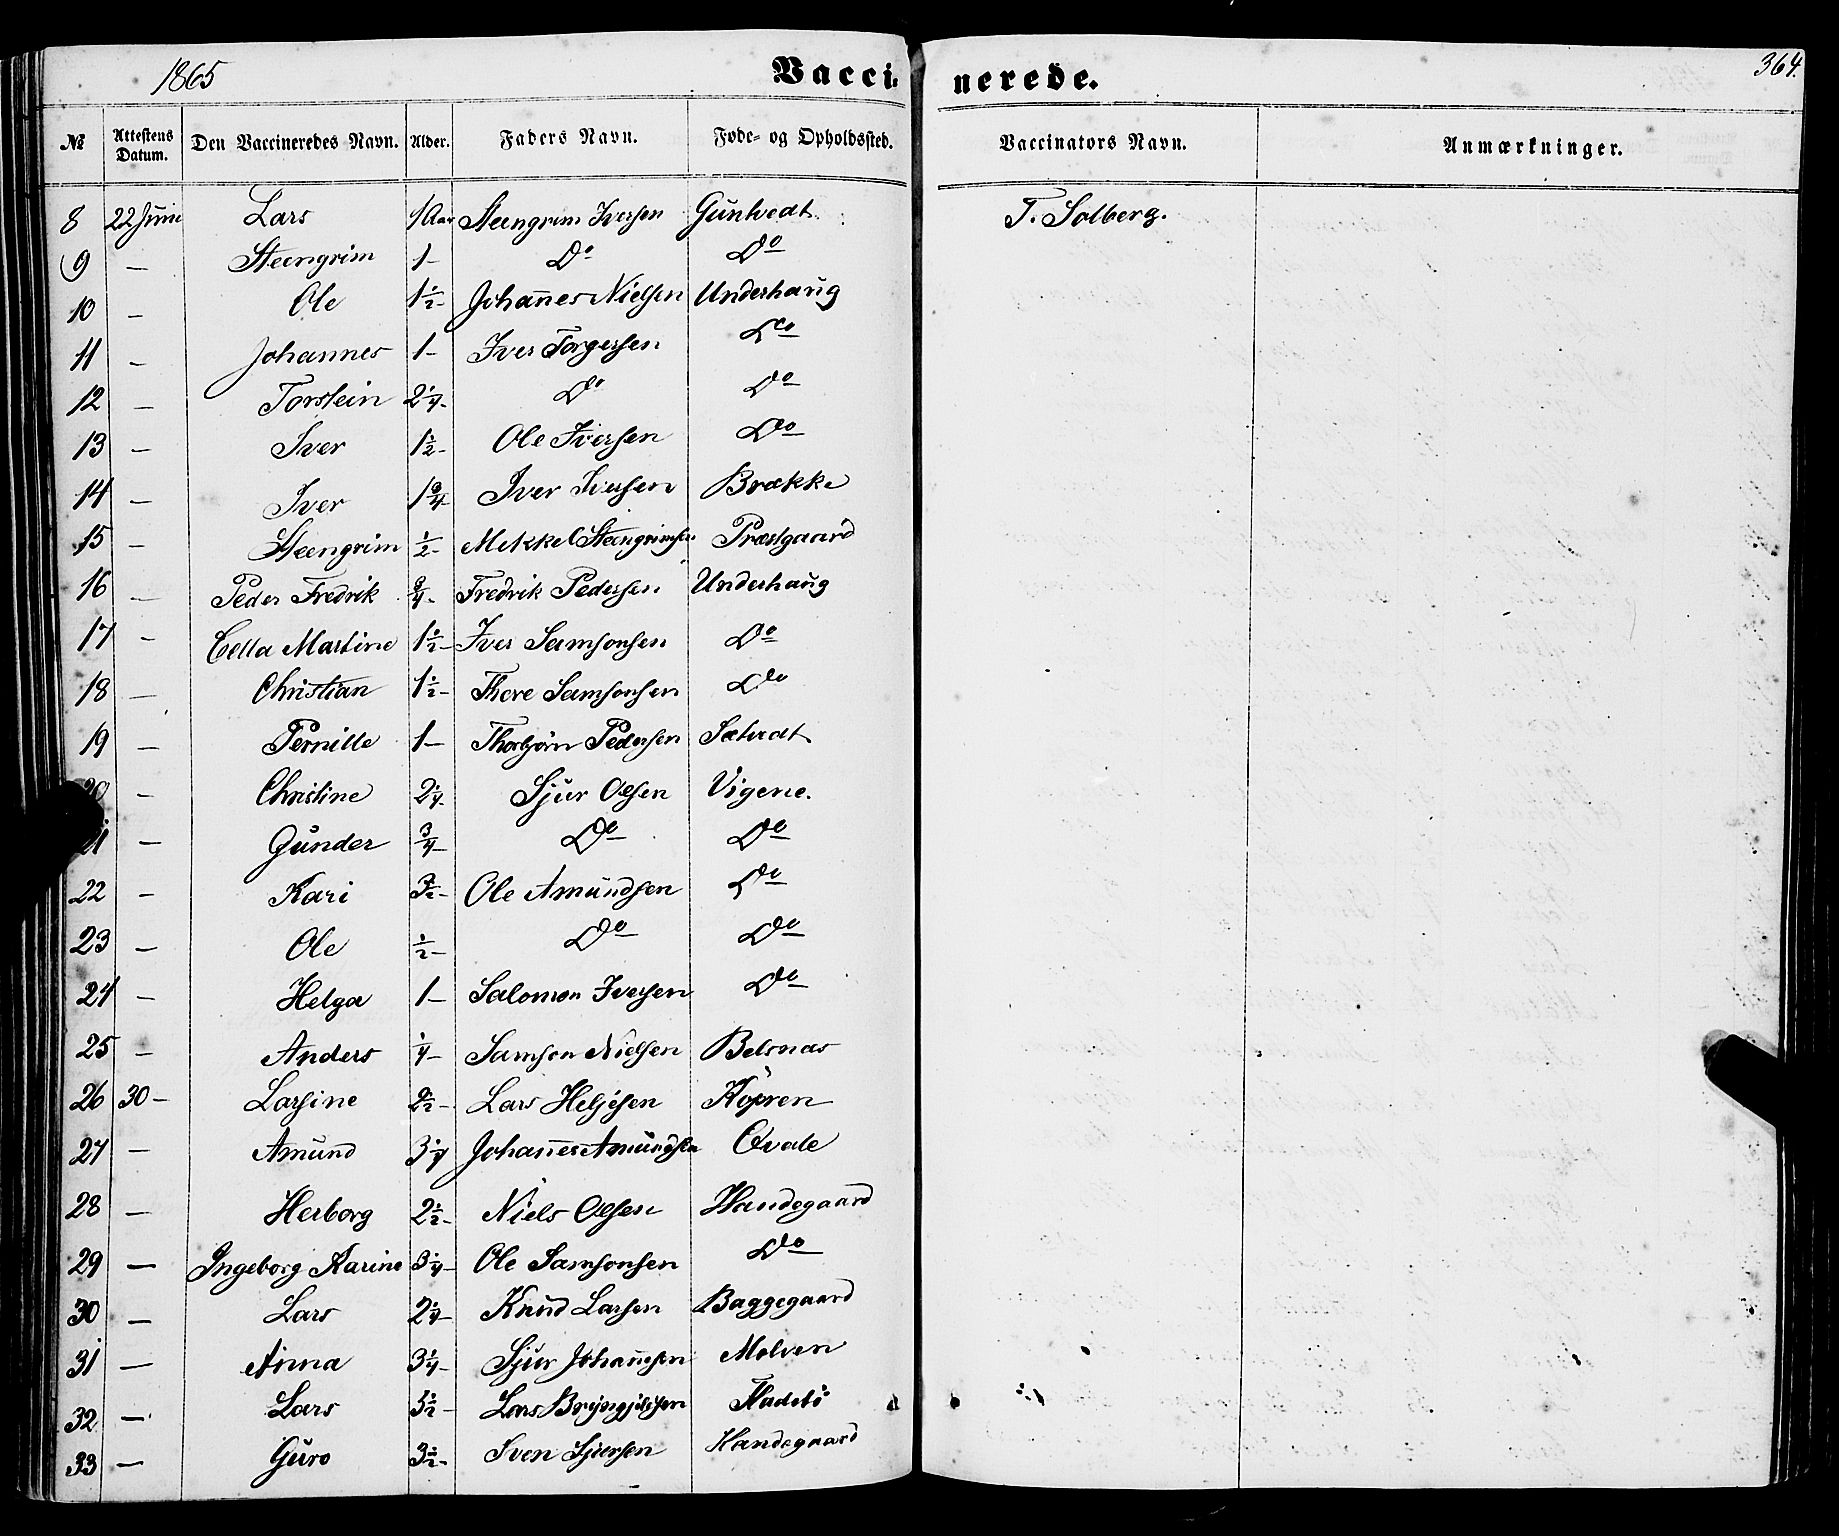 1865 Vacci- nerede. 364.
№ Attestens Datum. Den Vaccineredes Navn. Alder. Faders Navn. Føde- og Opholdssted. Vaccinators Navn. Anmærkninger.
8 22 Juni Lars 1 Aar Steengrim Iversen Guntvedt T. Solberg.
9 — Steengrim 1 — Do Do
10 — Ole 1½ — Johan̄es Nielsen Underhaug
11 — Johannes 1 — Iver Torgersen Do
12 — Torstein 2¼ — Do Do
13 — Iver 1½ — Ole Iversen Do
14 — Iver 1¾ Iver Iversen Brække
15 — Steengrim ½ — Mikkel Steengrimsen Præstgaard
16 — Peder Fredrik ¾ — Fredrik Pedersen Underhaug
17 — Martine 1½ — Iver Samsonsen Do
18 — Christian 1½ — Thore Samsonsen Do
19 — Pernille 1 — Thorbjörn Pedersen Sætvedt
20 — Christine 2¼ — Sjur Olsen Vigene.
21 — Gunder ¾ — Do Do
22 — Kari 3½ — Ole Amundsen Do
23 — Ole ½ — Do Do
24 — Helga 1 — Salomon Iversen Do
25 — Anders ¼ — Samson Nielsen Belsnæs
26 30 — Larsine Lars Heljesen Köpren
27 — Amund 3¼ Johan̄es Amundsen Qvale
28 — Herborg 2½ — Niels Olsen Handegaard
29 — Ingeborg Karine 3¼ — Ole Samsonsen Do
30 — Lars 2¼ — Knud Larsen Baggegaard
31 — Anna 3¼ — Sjur Johan̄sen Molven
32 — Lars Lars Brÿngjelsen Fladebö
33 — Guro 3½ — Sven Sjursen Handegaard